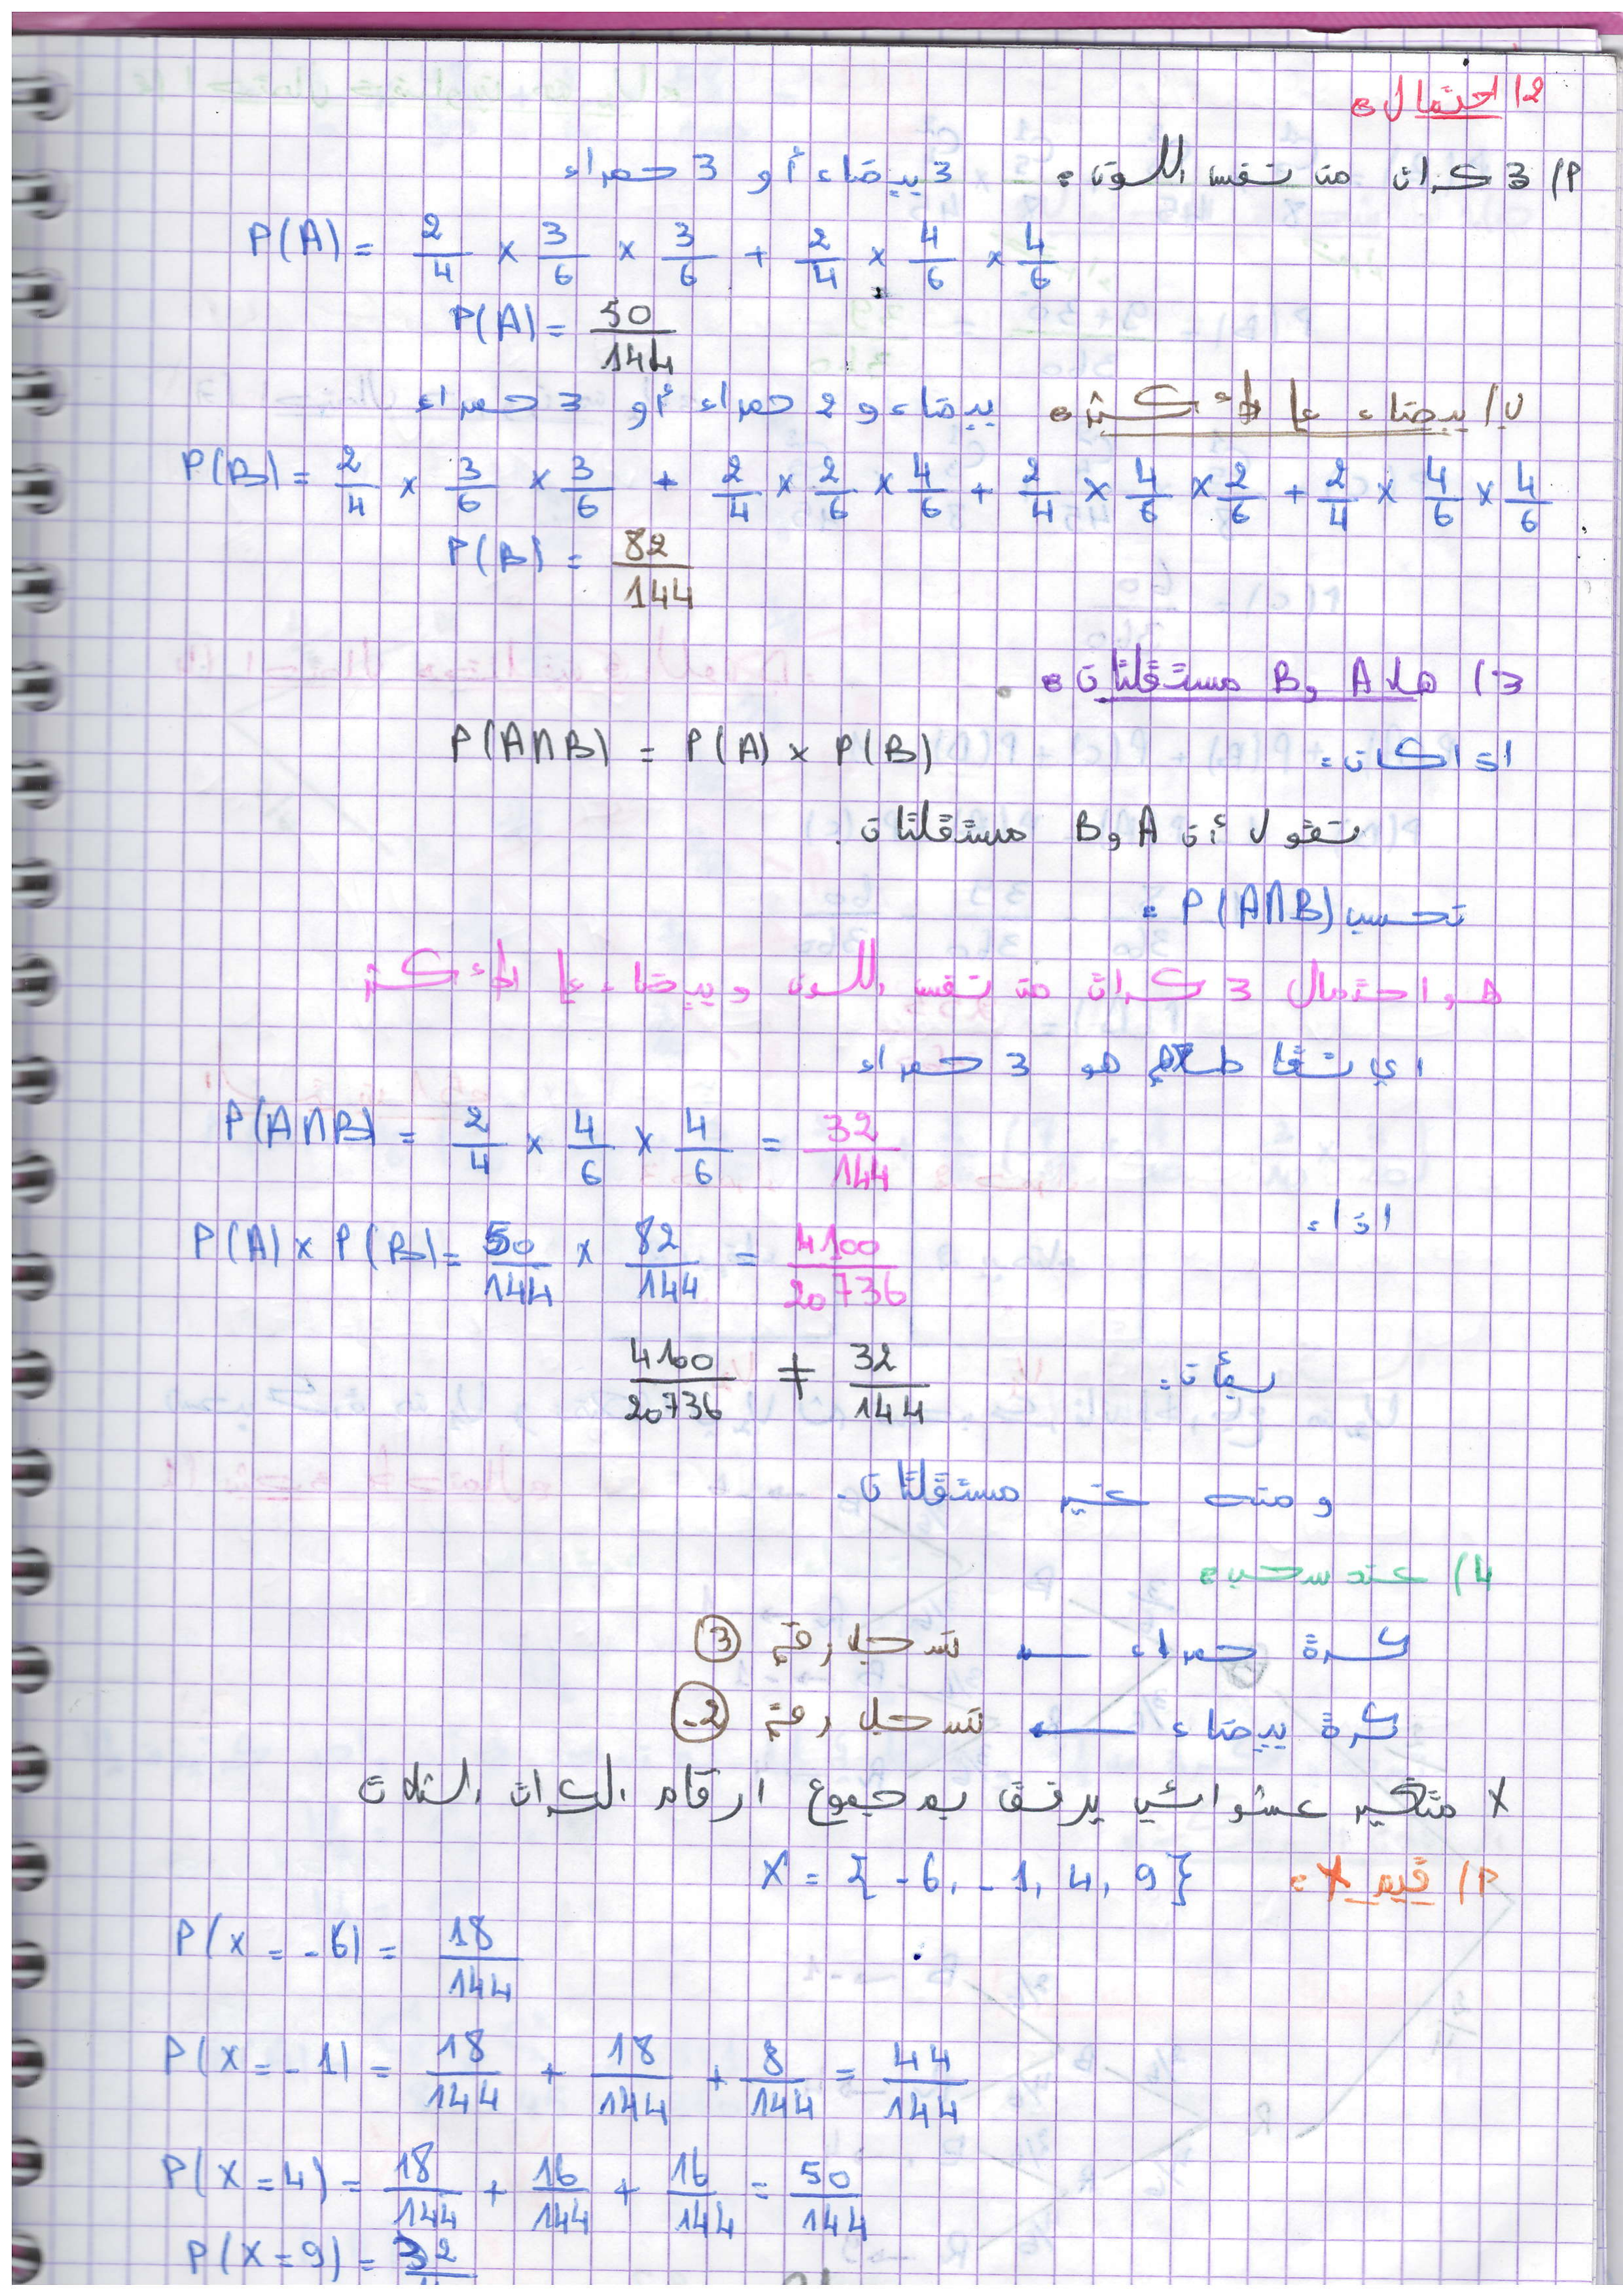 2) احتمال:
أ) 3 كرات من نفس اللون: 3 بيضاء أو 3 حمراء
P(A) = 2/4 × 3/6 × 3/6 + 2/4 × 4/6 × 4/6
P(A) = 50/144
ب) بيضاء على الأكثر: بيضاء و 2 حمراء أو 3 حمراء
P(B) = 2/4 × 3/6 × 3/6 + 2/4 × 2/6 × 4/6 + 2/4 × 4/6 × 2/6 + 2/4 × 4/6 × 4/6
P(B) = 82/144
3) هل A و B مستقلتان:
اذا كان: P(A∩B) = P(A) × P(B)
نقول أن A و B مستقلتان.
نحسب P(A∩B) :
هو احتمال 3 كرات من نفس اللون و بيضاء على الأكثر
اي تقاطعهم هو 3 حمراء
P(A∩B) = 2/4 × 4/6 × 4/6 = 32/144
اذا:
P(A) × P(B) = 50/144 × 82/144 = 4100/20736
بمأن: 4100/20736 ≠ 32/144
و منه غير مستقلتان.
4) عند سحب:
كرة حمراء ← نسجل رقم 3
كرة بيضاء ← نسجل رقم -2
X متغير عشوائي يرفق بمجموع ارقام الكرات الثلاث
أ) قيم X: X = {-6, -1, 4, 9}
P(X = -6) = 18/144
P(X = -1) = 18/144 + 18/144 + 8/144 = 44/144
P(X = 4) = 18/144 + 16/144 + 16/144 = 50/144
P(X = 9) = 32